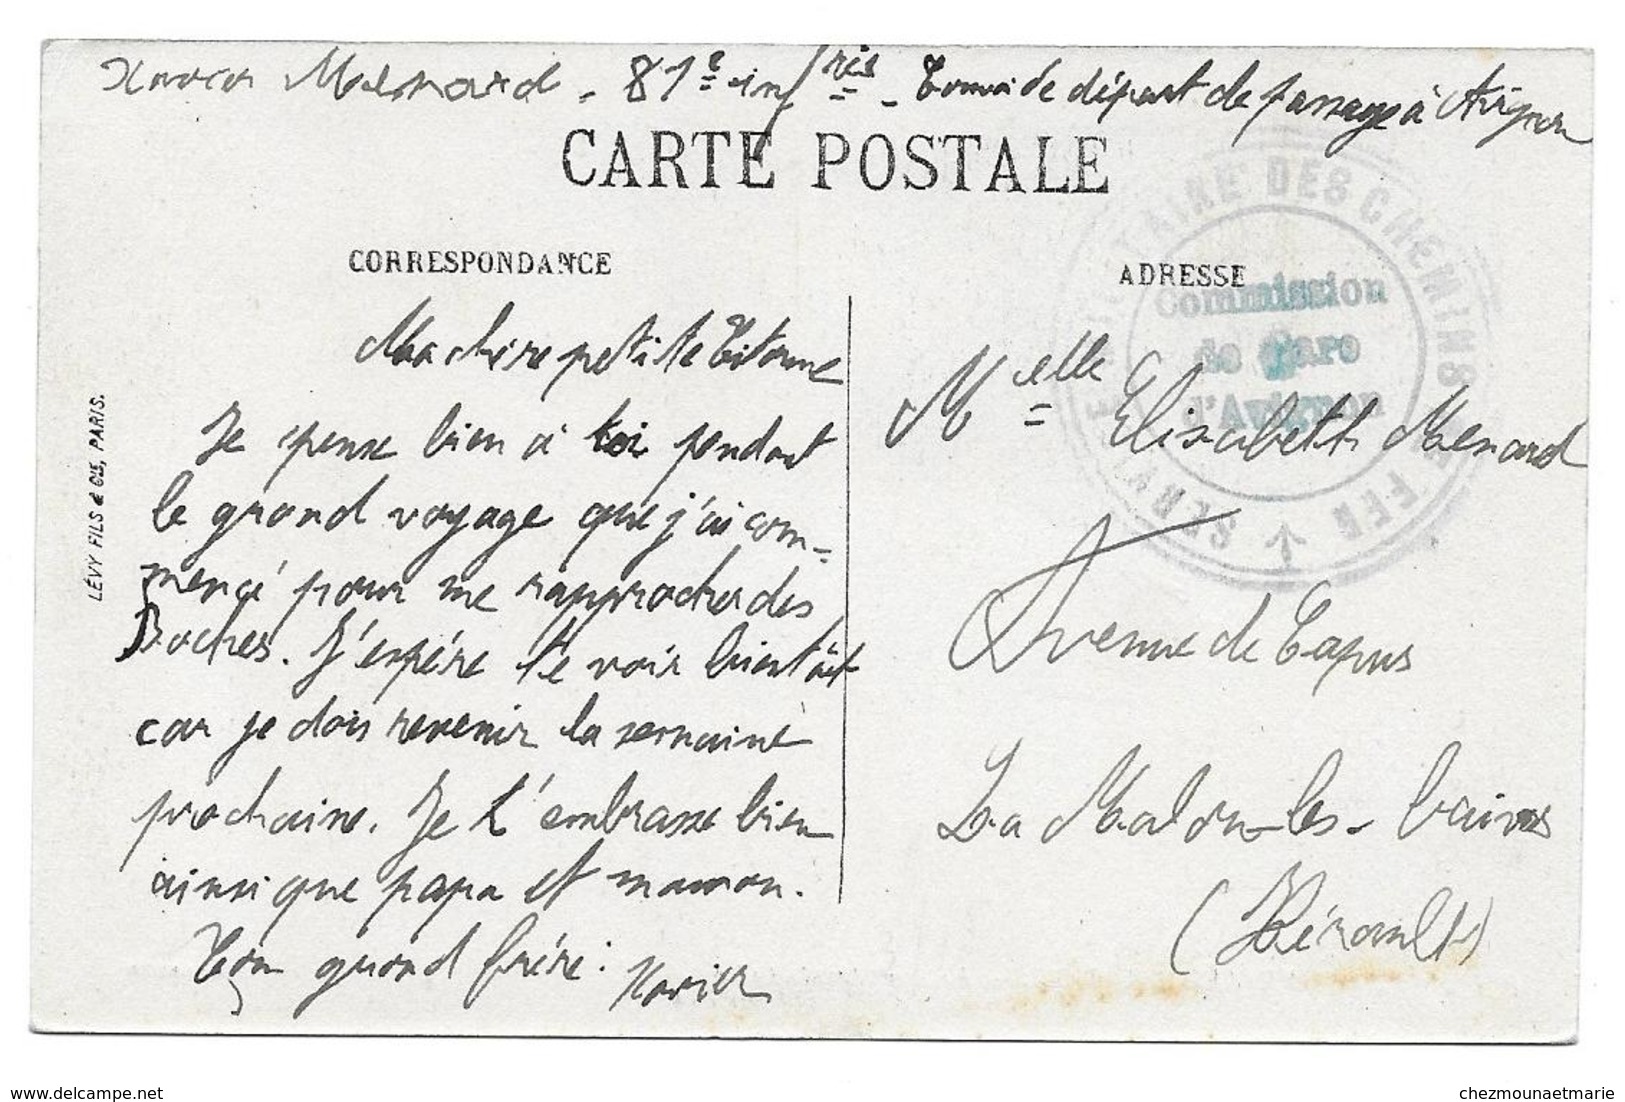 Xavier Mesnard - 81e infrie - Convoi de départ de passage à Avignon
CARTE POSTALE
CORRESPONDANCE
ADRESSE
SERVICE MILITAIRE DES CHEMINS DE FER
Commission
de Gare
d'Avignon
LÉVY FILS & CIE, PARIS.
Ma chère petite
Je pense bien à toi pendant
le grand voyage que j'ai com-
mencé pour me rapprocher des
Boches. J'espère te voir bientôt
car je dois revenir la semaine
prochaine. Je t'embrasse bien
ainsi que papa et maman.
Ton grand frère. Xavier
Melle Elisabeth Mesnard
Avenue de Capus
La Malou-les-bains
(Hérault)
chezmounaetmarie
www.delcampe.net